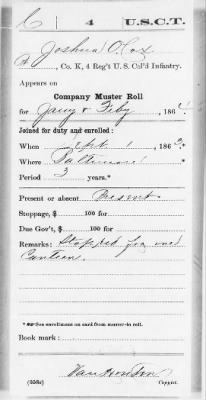 C | 4 | U.S.C.T.
Joshua O. Cox
, Co. K, 4 Reg't U. S. Col'd Infantry.
Appears on
Company Muster Roll
for Jany & Feby , 1864.
Joined for duty and enrolled:
When Sept 1 , 1863.*
Where Baltimore
Period 3 years.*
Present or absent Present
Stoppage, $ 100 for
Due Gov't, $ 100 for
Remarks: Stopped for one
Canteen.
* See enrollment on card from muster-in roll.
Book mark:
(358c) Copyist.